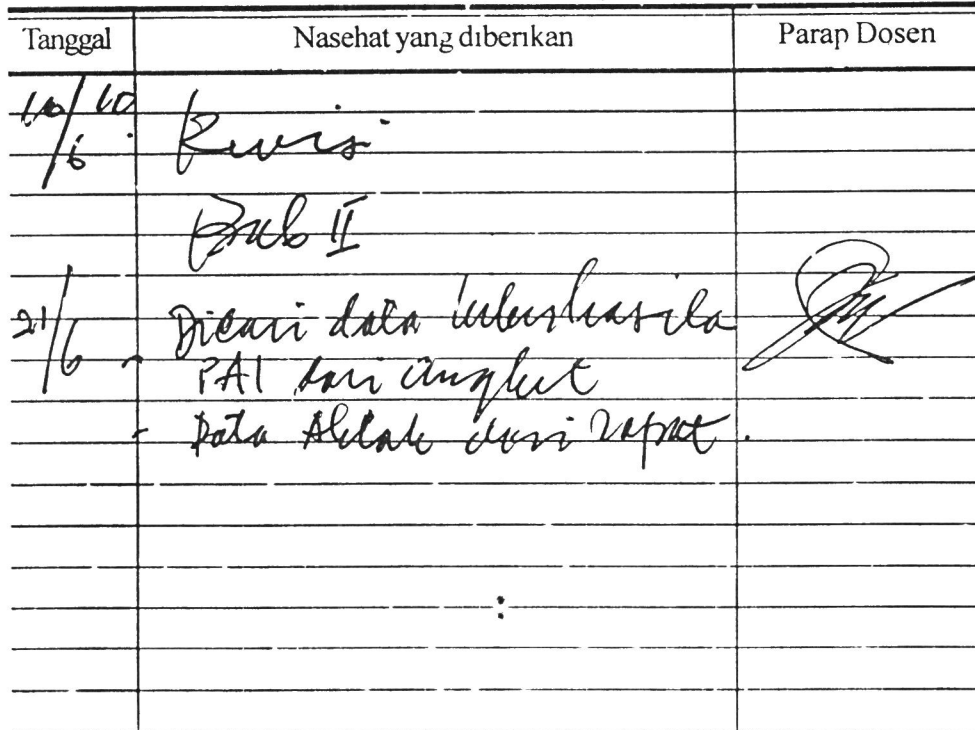 Tanggal Nasehat yang diberikan Parap Dosen
Revisi
Bab II
21/6 Dicari data keberhasila
- PAI dari angket
- Data Akhlak dari rapot.